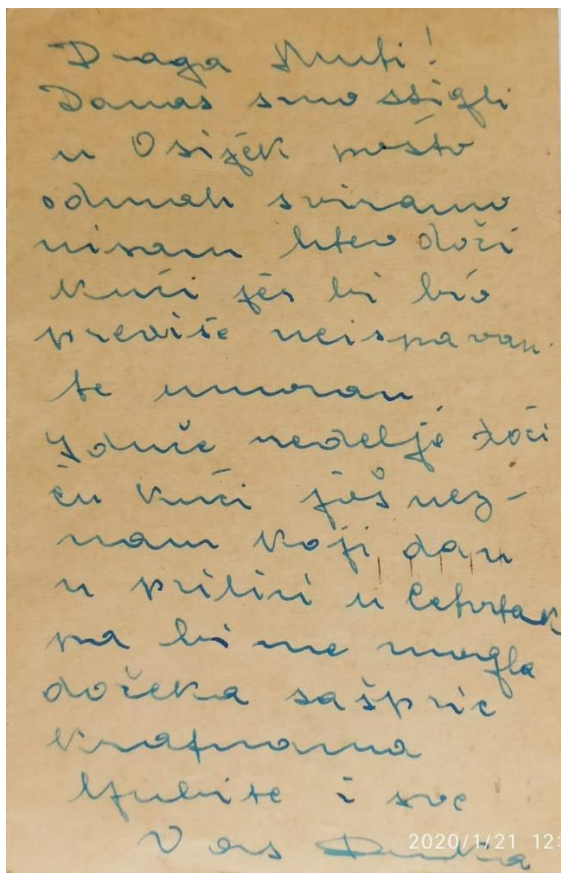 Draga Muti!
Danas smo stigli
u Osijek pošto
odmah sviramo
nisam hteo doći
kući jer bi bio
previše neispavan
te umoran
Iduće nedelje doći
ću kući još nez-
nam koji dan
u prilici u četvrtak
pa bi me mogla
dočeka sašpric
krafnama
ljubi te i sve
Vas
2020/1/21 12: